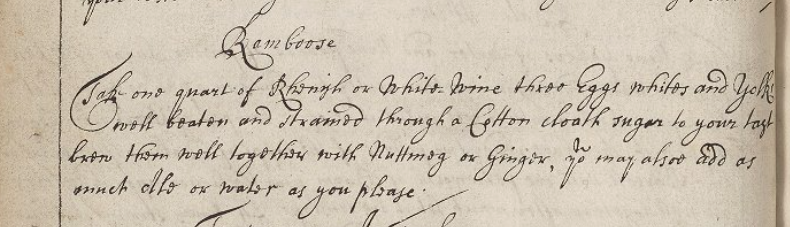 Ramboose
Take one quart of Rhenish or White-Wine three Eggs whites and Yolks
well beaten and strained through a Cotton cloath sugar to your tast
brew them well together with Nuttmeg or Ginger, yo may alsoe add as
much Ale or water as you please.